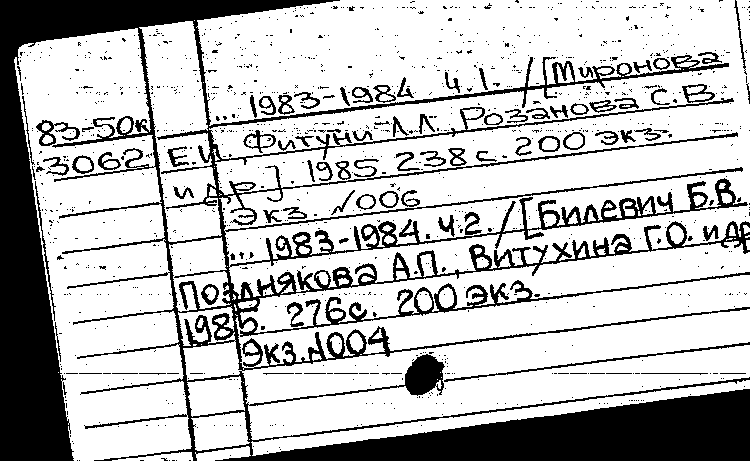 ... 1983-1984 ч.1. / [Миронова
83-50к
3062 Е.И., Фитуни Л.Л., Розанова С.В.
и др.]. 1985. 238 с. 200 экз.
Экз. №006
... 1983-1984. ч.2. / [Билевич Б.В.
Позднякова А.П., Витухина Г.О. и др
1985. 276с. 200 экз.
Экз. №004